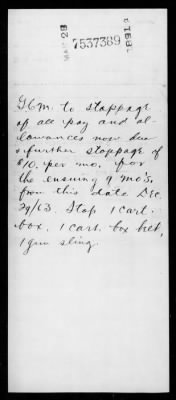 MAR 29
7537389
1891
G.C.M. to stoppage
of all pay and al-
lowances now due
& further stoppage of
$10. per mo. for
the ensuing 9 mo's.
from this date Dec.
29/63. Stop 1 cart.
box, 1 cart. box belt,
1 gun sling.